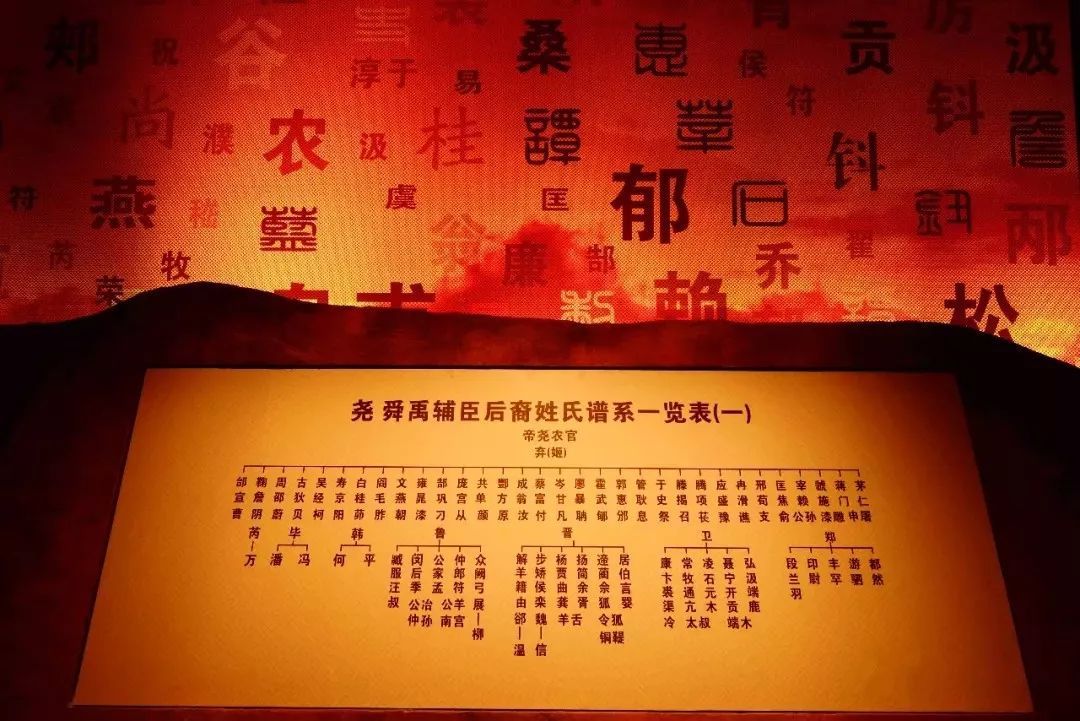 郏 祝 谷 淳于 裴 易 桑 惠 侯 符 贡 厉 汲
尚 濮 农 汲 桂 譚 莘 钭 钭 詹
符 燕 嵇 藍 虞 匡 郁 石 邴
芮 牧 荣 翁 廉 郜 乔 翟
赖 松
尧 舜禹辅臣后裔姓氏谱系一览表(一)
帝尧农官
弃(姬)
郃 鞠 周 古 吴 寿 白 阎 文 雍 郜 庞 共 酆 成 蔡 岑 廖 霍 郭 管 于 滕 腾 应 冉 邢 匡 宰 虢 蒋 茅
宣 詹 邵 狄 经 京 桂 毛 燕 晁 巩 宫 单 方 翁 富 甘 暴 武 惠 耿 史 揭 项 盛 滑 荀 焦 赖 施 门 仁
曹 阴 蔚 贝 柯 阳 茆 胙 朝 漆 刁 从 颜 原 汝 付 凡 聃 郇 邠 息 祭 召 苌 豫 谯 支 俞 公孙 漆雕 申屠
芮 毕 韩 鲁 晋 卫 郑
万 潘 冯 何 平
臧 闵 公 仲 众
服 后 家 郎 阙
汪 季 孟 符 弓
叔 公 冶 公 羊 展
仲 孙 南 宫 柳
解 步 杨 扬 逯 居
羊 矫 贾 简 蔺 伯
籍 侯 曲 余 佘 言
由 栾 龚 胥 狐 婴
郤 魏 羊舌 令狐
温 信 铜鞮
康 常 凌 聂 弘
卞 牧 石 宁 汲
裘 通 元 开 端
渠 亢 木 贡 鹿
冷 太叔 端木
段 印 丰 游 都
兰 尉 罕 驷 然
羽